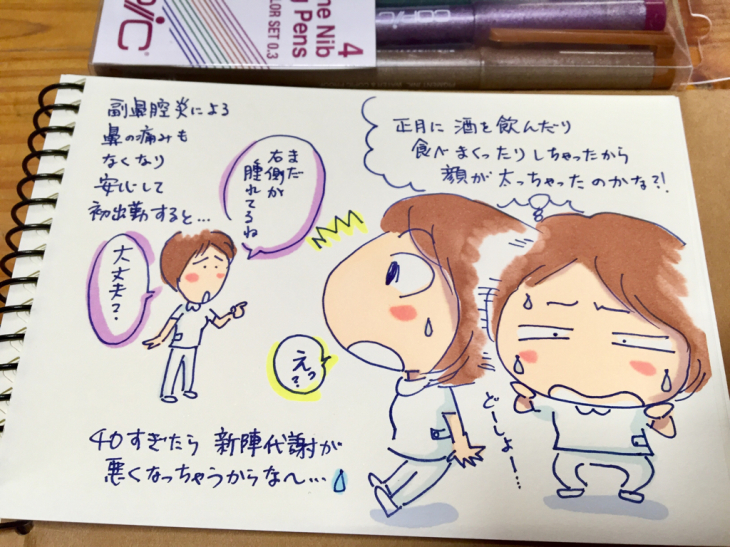 4
ne Nib
g Pens
OLOR SET 0.3
副鼻腔炎による
鼻の痛みも
なくなり
安心して
初出勤すると…
まだ
右側が
腫れてるね
大丈夫?
正月に 酒を飲んだり
食べまくったりしちゃったから
顔が太っちゃったのかな?!
えっ?
どーしよー…
40すぎたら 新陳代謝が
悪くなっちゃうからな〜…